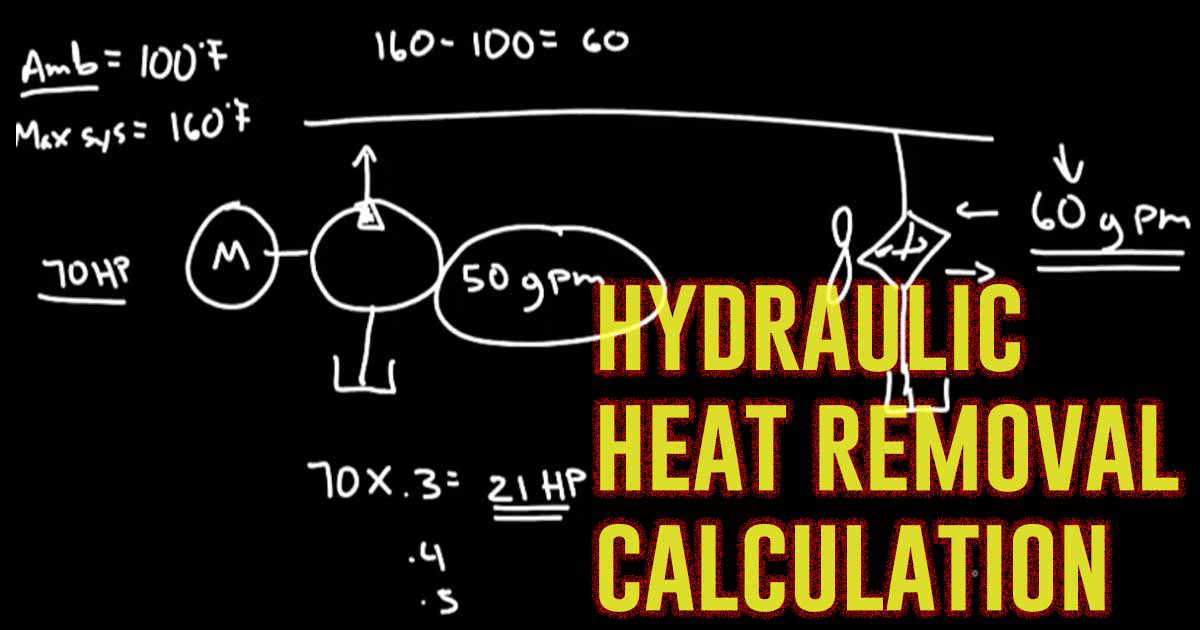 Amb = 100°F
160 - 100 = 60
Max sys = 160°F
70 HP
M
50 gpm
60 gpm
70 x .3 = 21 HP
.4
.5
HYDRAULIC
HEAT REMOVAL
CALCULATION